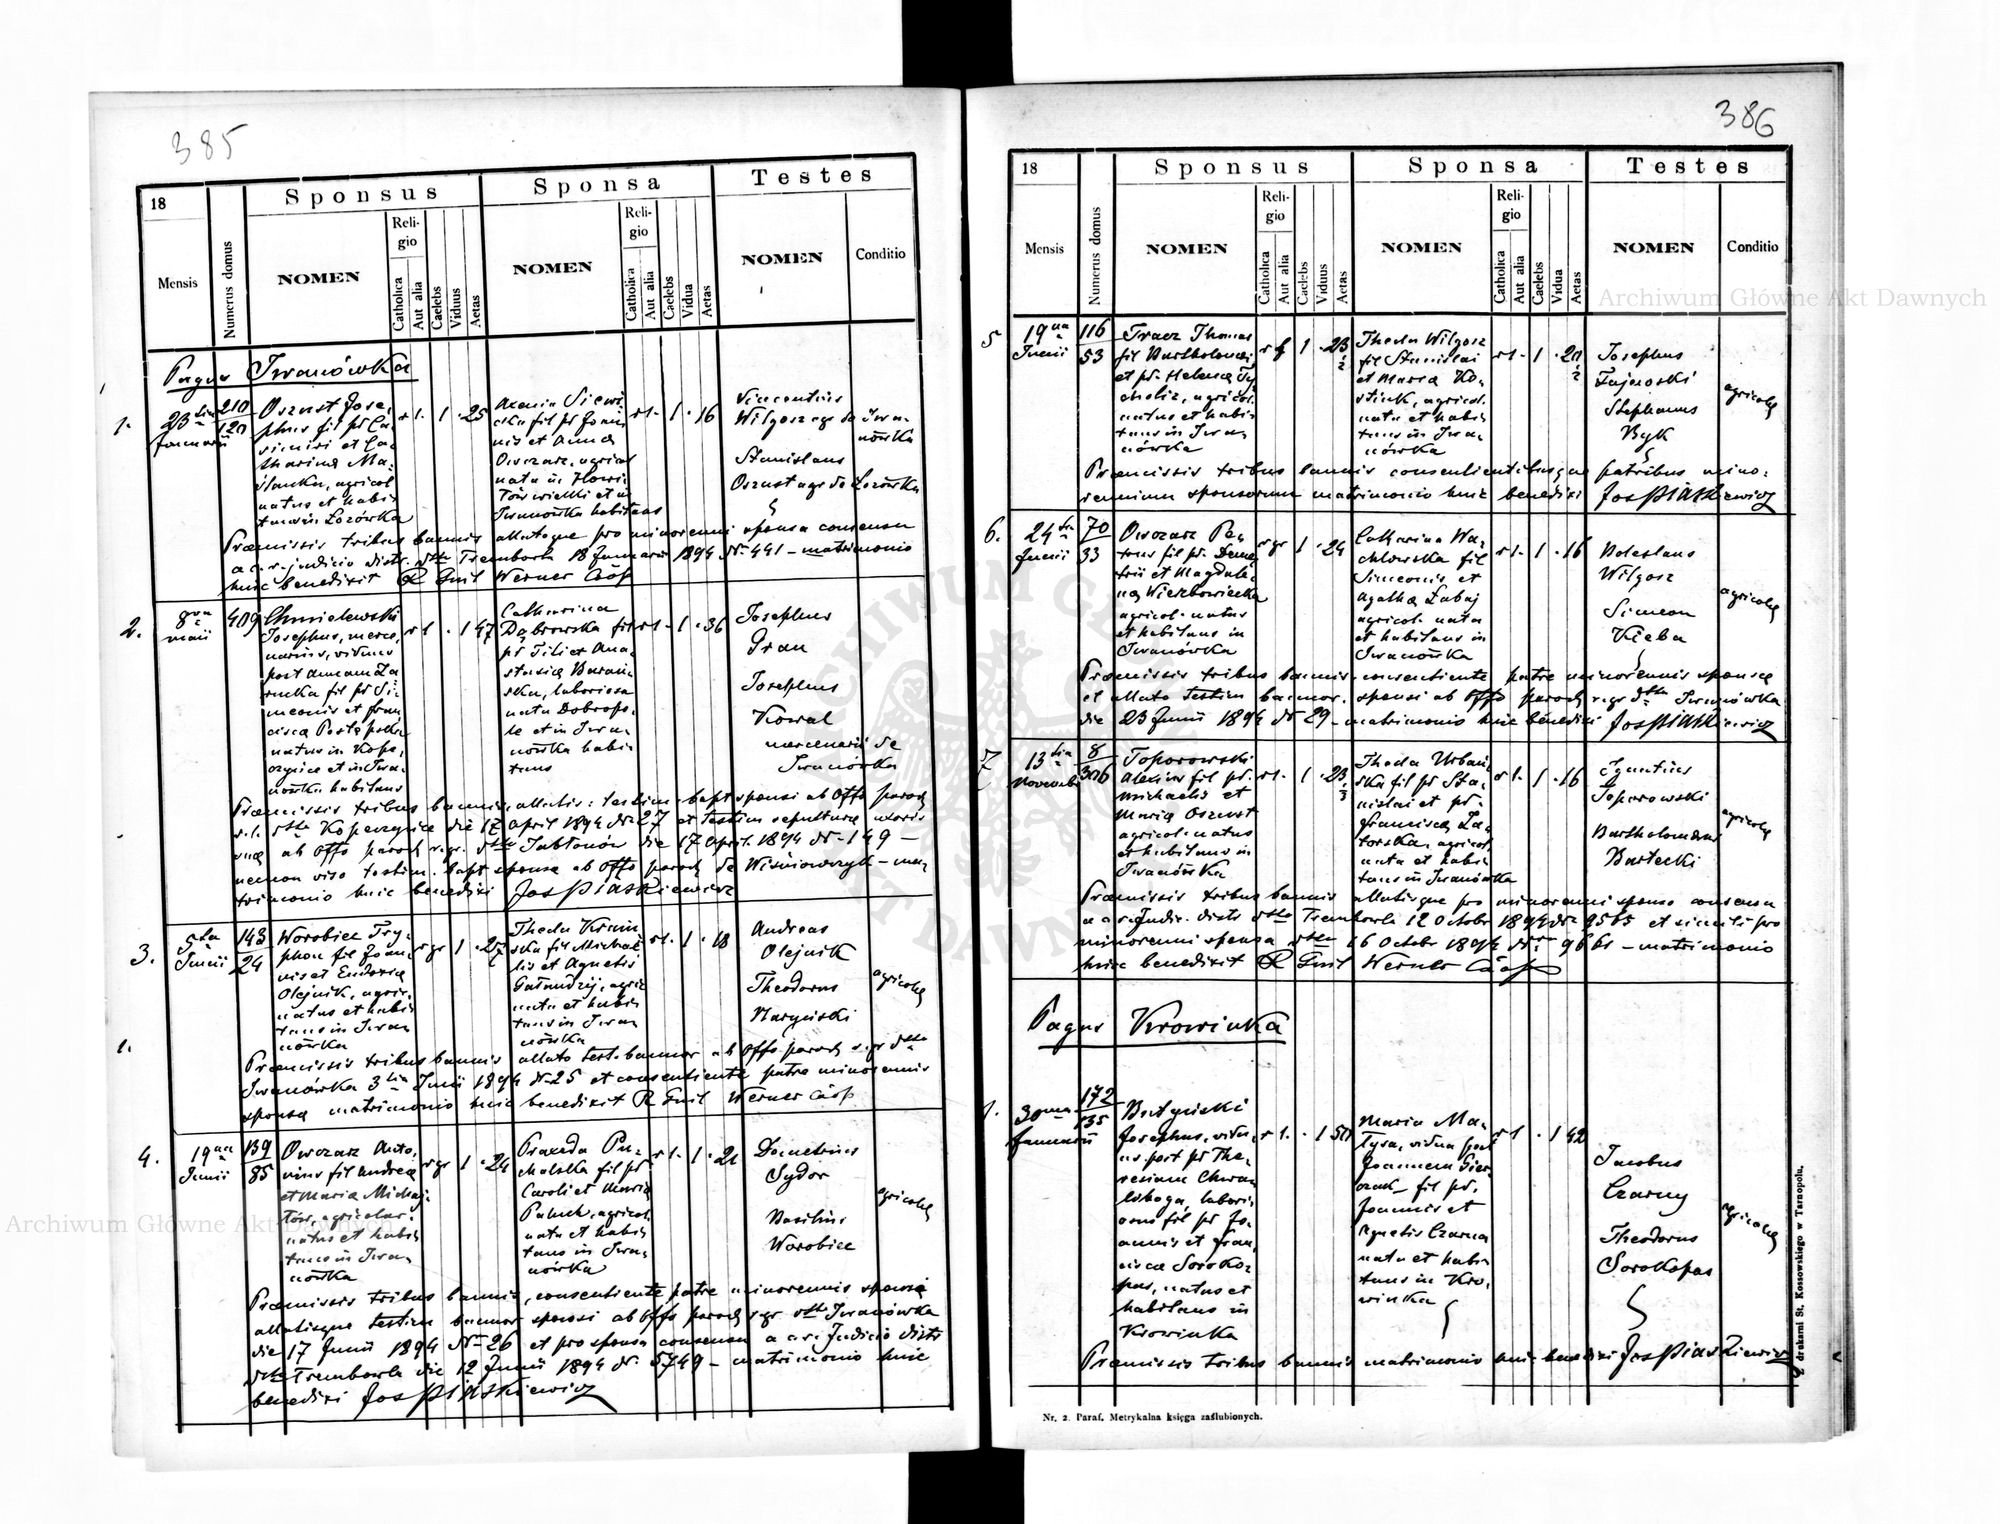 385
18
Mensis
Numerus domus
Sponsus
NOMEN
Religio
Catholica
Aut alia
Caelebs
Viduus
Aetas
Sponsa
NOMEN
Religio
Catholica
Aut alia
Caelebs
Vidua
Aetas
Testes
NOMEN
Conditio
Pagus Iwanówka
1.
23tia
Januarii
210
120
Oszust Jose-
phus fil p̄r Ca-
simiri et Ca-
tharina Ma-
ślanka, agricol
natus et habi-
tans in Łozówka
r l. 1 . 25
fil p̄r Joan-
nis et Anna
Owczarz, agricol
nata in Howi-
łów wielki et in
Iwanówka habitans
r l. 1 . 16
Vincentius
Wilgosz agr de Iwa-
nówka
Stanislaus
Oszust agr de Łozówka
Praemissis tribus bannis allatoque pro minorenni sponsa consensu
a c. r. judicio distr. dtto Trembowla 18 Januarii 1894 Nr 441 – matrimonio
huic benedixit R Guil Werner Coop
2.
8va
maii
409
Chmielewski
Josephus, merce-
narius, viduus
post Annam Za-
fil p̄r Si-
meonis et Fran-
cisca Postępska
natus in Kope-
czynce et in Iwa-
nówka habitans
r l . 1 47
Catharina
Dąbrowska fil
p̄r Titi et Ana-
stasia Barań-
ska, laboriosa
nata Dobropo-
le et in Iwa-
nówka habi-
tans
r l . 1 . 36
Josephus
Gran
Josephus
Kowal
mercenarii de
Iwanówka
Praemissis tribus bannis, allatis: testim. bapt sponsi ab Offo paroch
r. l. dtto Kopeczynce die 17 April 1894 Nr 27 et testim sepulturae uxoris
suae ab Offo paroch r. gr. dtto Jabłonów die 17 April. 1894 Nr 149 –
necnon viso testim. bapt sponsa ab Offo paroch de Wiśniowczyk – ma-
trimonio huic benedixi Jos Piaskiewicz
3.
5ta
Junii
143
24
Worobiec Try-
phon fil Joan-
nis et Eudoxia
Olejnik, agric.
natus et habi-
tans in Iwa-
nówka
r gr 1 . 27
Thecla Krwin-
ska fil Michae-
lis et Agnetis
agric
nata et habi-
tans in Iwa-
nówka
r l. 1 . 18
Andreas
Olejnik
Theodorus
Maryński
agricolae
Praemissis tribus bannis allato test. bannor ab Offo paroch r. gr dtto
Iwanówka 3tia Junii 1894 Nr 25 et consentiente patre minorennis
sponsa matrimonio huic benedixit R Guil Werner Coop
4.
19na
Junii
139
85
Owczarz Anto-
nius fil Andrea
et Maria Michaj-
łów, agricolar.
natus et habi-
tans in Iwa-
nówka
r gr 1 . 24
Praxeda Pu-
chalska fil p̄r
Caroli et Maria
Paluch, agricol.
nata et habi-
tans in Iwa-
nówka
r l. 1 . 21
Demetrius
Sydor
Basilius
Worobiec
agricolae
Praemissis tribus bannis, consentiente patre minorennis sponsa
allatisque testim bannor sponsi ab Offo paroch r. gr dtto Iwanówka
die 17 Junii 1894 Nr 26 et pro sponsa consensu a c. r. Judicio distr
dtto Trembowla die 12 Junii 1894 Nr. 5749 – matrimonio huic
benedixi Jos Piaskiewicz
386
18
Mensis
Numerus domus
Sponsus
NOMEN
Religio
Catholica
Aut alia
Caelebs
Viduus
Aetas
Sponsa
NOMEN
Religio
Catholica
Aut alia
Caelebs
Vidua
Aetas
Testes
NOMEN
Conditio
5
19na
Junii
116
53
Tracz Thomas
fil Bartholomei
et p̄r. Helena Ty-
choliz, agricol.
natus et habi-
tans in Iwa-
nówka
1 . 23
Thecla Wilgosz
fil Stanislai
et Maria Ko-
stiuk, agricol.
nata et habi-
tans in Iwa-
nówka
r l. 1 . 20
Josephus
Zajaroski
Stephanus
Byk
agricolae
Praemissis tribus bannis consentientibusque patribus mino-
rennium sponsorum matrimonio huic benedixi Jos Piaskiewicz
6.
24ta
Junii
70
33
Owczarz Pe-
trus fil p̄r. Deme-
trii et Magdale-
na Wierzbowiecka
agricol. natus
et habitans in
Iwanówka
r gr 1 . 24
Catharina Wa-
chlowska fil
Simeonis et
Agatha Zabaj
agricol. nata
et habitans in
Iwanówka
r l. 1 . 16
Boleslaus
Wilgosz
Simeon
Kieba
agricolae
Praemissis tribus bannis consentiente patre minorennis sponsa
et allato testim bannor. sponsi ab Offo paroch r. gr dtto Iwanówka
die 23 Junii 1894 Nr 29 – matrimonio huic benedixi Jos Piaskiewicz
7
13tia
Novembr
8
306
Toporowski
Alexius fil p̄r.
Michaelis et
Maria Oszust
agricol. natus
et habitans in
Iwanówka
r l. 1 . 23
Thecla Urbań-
ska fil p̄r Sta-
nislai et p̄r.
Francisca Za-
torska, agricol.
nata et habi-
tans in Iwanówka
r l. 1 . 16
Ignatius
Toporowski
Bartholomaeus
Bartecki
agricolae
Praemissis tribus bannis allatisque pro minorenni sponso consensu
a c. r. Judic. distr dtto Trembowla 12 Octobr 1894 Nr. 9565 et simili pro
minorenni sponsa dtto 16 Octobr 1894 Nro 9661 – matrimonio
huic benedixit R Guil Werner Coop
Pagus Krowinka
1.
30ma
Januarii
172
135
Butyński
Josephus, vidu-
us post p̄r The-
resiam Chwa-
liboga, labori-
osus fil p̄r Jo-
annis et Fran-
cisca Soroko-
pas, natus et
habitans in
Krowinka
r l. . 1 50
Maria Ma-
łysa, vidua post
Joannem Gier-
czak fil p̄r.
Joannis et
Agnetis Czarna
nata et habi-
tans in Kro-
winka
r l . 1 42
Jacobus
Czarny
Theodorus
Sorokopas
agricolae
Praemissis tribus bannis matrimonio huic benedixi Jos Piaskiewicz
Nr. 2. Paraf. Metrykalna księga zaślubionych.
Z drukarni St. Kossowskiego w Tarnopolu.
Archiwum Główne Akt Dawnych
Archiwum Główne Akt Dawnych
ARCHIWUM GŁÓWNE AKT DAWNYCH